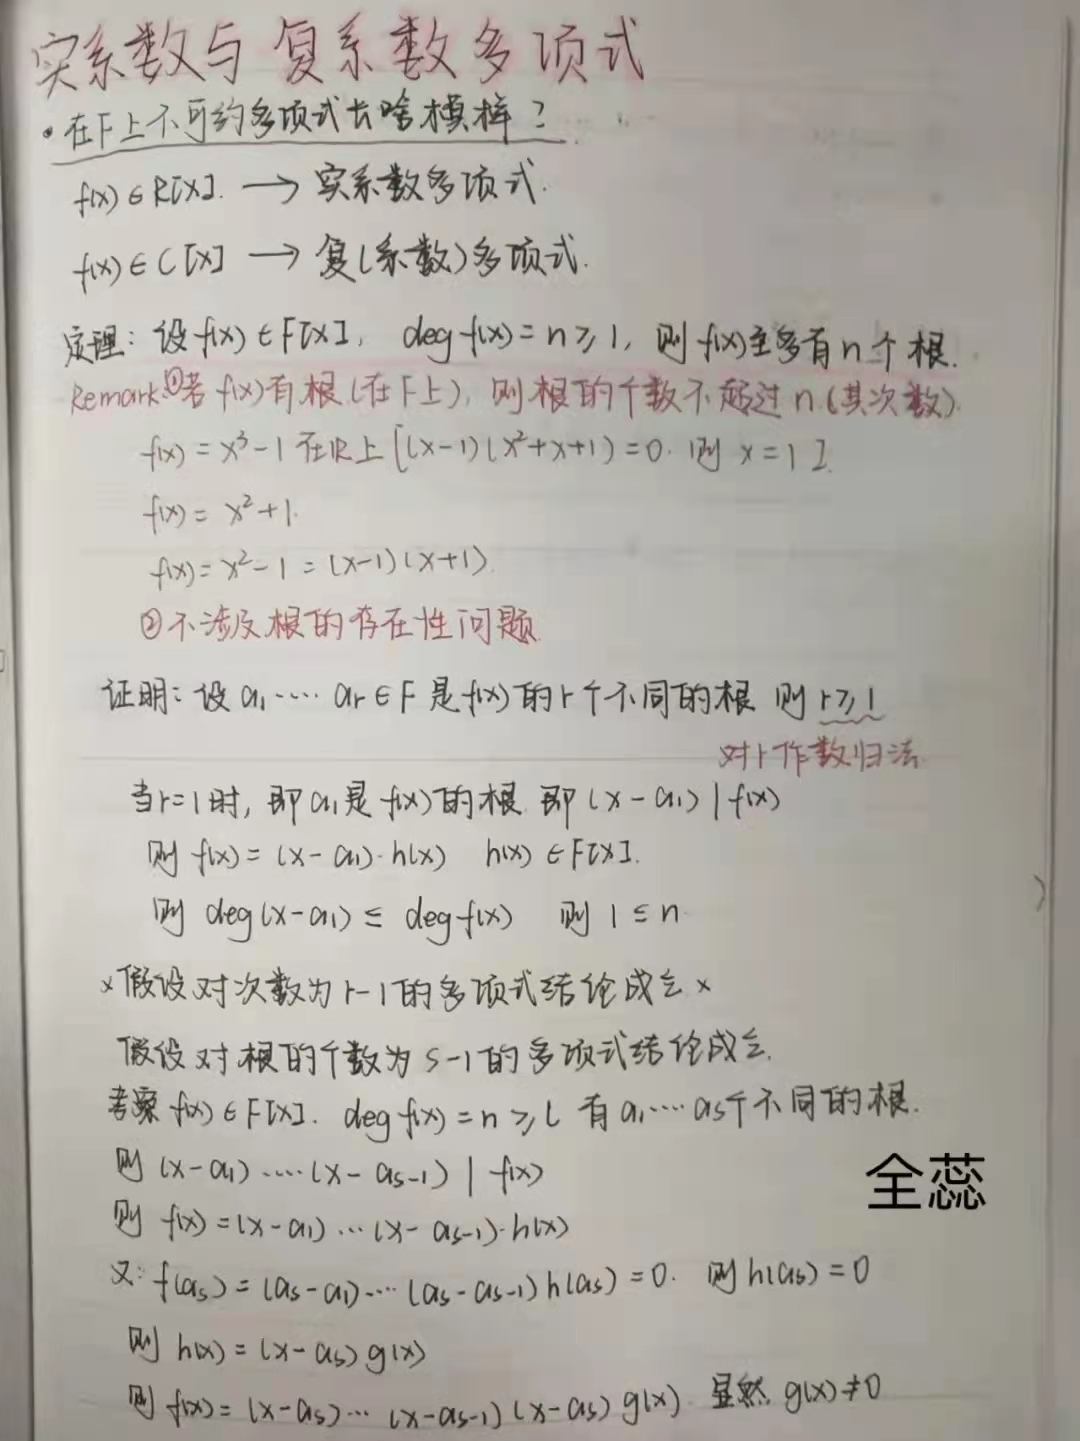 实系数与复系数多项式
• 在F上不可约多项式长啥模样?
f(x)∈R[X]. → 实系数多项式.
f(x)∈C[X] → 复(系数)多项式.
定理: 设f(x)∈F[X], deg f(x)=n≥1, 则f(x)至多有n个根.
Remark:①若f(x)有根(在F上), 则根的个数不超过n.(其次数)
f(x)=x³-1 在R上 [(x-1)(x²+x+1)=0. 则 x=1].
f(x)= x²+1.
f(x)=x²-1=(x-1)(x+1).
②不涉及根的存在性问题
证明: 设a₁……aᵣ∈F 是f(x)的r个不同的根 则r≥1
对r作数归法
当r=1时, 即a₁是f(x)的根. 即(x-a₁)|f(x)
则 f(x)=(x-a₁)·h(x) h(x)∈F[X].
则 deg(x-a₁)≤deg f(x) 则 1≤n.
×假设对次数为r-1的多项式结论成立×
假设对根的个数为s-1的多项式结论成立.
考察f(x)∈F[X]. deg f(x)=n≥1 有a₁……aₛ个不同的根.
则 (x-a₁)……(x-aₛ₋₁)|f(x)
全蕊
则 f(x)=(x-a₁)…(x-aₛ₋₁)·h(x)
又: f(aₛ)=(aₛ-a₁)……(aₛ-aₛ₋₁)h(aₛ)=0. 则h(aₛ)=0
则 h(x)=(x-aₛ)g(x)
则 f(x)=(x-aₛ)…(x-aₛ₋₁)(x-aₛ)g(x). 显然 g(x)≠0